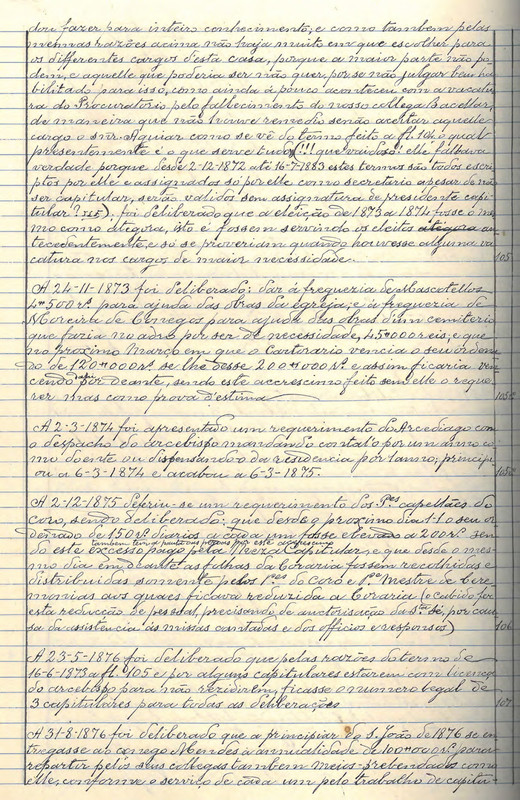 dou fazer para inteiro conhecimento, e como tambem pelas
mesmas razões acima não haja muito em que escolher para
os differentes cargos d'esta casa, porque a maior parte não po-
dem, e aquelle que poderia ser não quer, por se não julgar bem ha-
bilitado para isso, como ainda á pouco aconteceu com a vacatu-
ra do Procuratorio pelo fallecimento do nosso collega Bacellar,
de maneira que não houve remedio senão acceitar aquelle
cargo o snr. Aguiar como se vê do termo feito a fl. 104, o qual
presentemente é o que serve tudo (!!! que vaidoso! elle fallava
verdade porque desde 2-12-1872 até 16-7-1883 estes termos são todos escri-
ptos por elle e assignados só por elle como secretario apesar de não
ser capitular, serão validos sem assignatura de presidente capi-
tular?), foi deliberado que a eleição de 1873 a 1874 fosse o mes-
mo como atégora, isto é fossem servindo os eleitos atégora an-
tecedentemente, e só se proveriam quando houvesse alguma va-
catura nos cargos de maior necessidade.
105
A 24-11-1873 foi deliberado: dar á freguezia de Mascotellos
4$500 r.s para ajuda das obras da Egreja, e á freguezia de
Moreira de Conegos para ajuda das obras d'um cemiterio
que faria no adro por ser de necessidade, 45$000 reis, e que
no proximo Março em que o Cartorario vencia o seu ordena-
do de 120$000 r.s se lhe desse 200$000 r.s e assim ficaria ven-
cendo d'ahi por deante, sendo este accrescimo feito sem elle o reque-
rer mas como prova d'estima
105
A 2-3-1874 foi apresentado um requerimento do Arcediago com
o despacho do arcebispo mandando contal-o por um anno co-
mo doente ou dispensando-o da residencia por 1 anno; principi-
ou a 6-3-1874 e acabou a 6-3-1875.
105
A 2-12-1875 deferiu-se um requerimento dos P.es capellães do
coro, sendo deliberado: que desde o proximo dia 1-1 o seu or-
denado de 150 r.s diarios a cada um fosse elevado a 200 r.s sen-
do este excesso pago pela Meza Capitular, e que desde o mes-
mo dia em deante as folhas da Coraria fossem recolhidas e
distribuidas somente pelos P.es do Coro e P.e Mestre de Cere-
monias aos quaes ficava reduzida a Coraria (o Cabido fez
esta reducção de pessoal, precisando de auctorisação da S.ta Sé, por cau-
sa da assistencia ás missas cantadas e dos officios e responsos)
106
A 23-5-1876 foi deliberado que pelas razões do termo de
16-6-1873 a fl. 105 e por alguns capitulares estarem com licença
do arcebispo para não rezidirem, ficasse o numero legal de
3 capitulares para todas as deliberações
107
A 31-8-1876 foi deliberado que a principiar do S. João de 1876 se en-
tregasse ao conego Mendes a annualidade de 100$000 r.s para
repartir pelos seus collegas tambem meios-prebendados como
elle, conforme o serviço de cada um pelo trabalho de capitu-